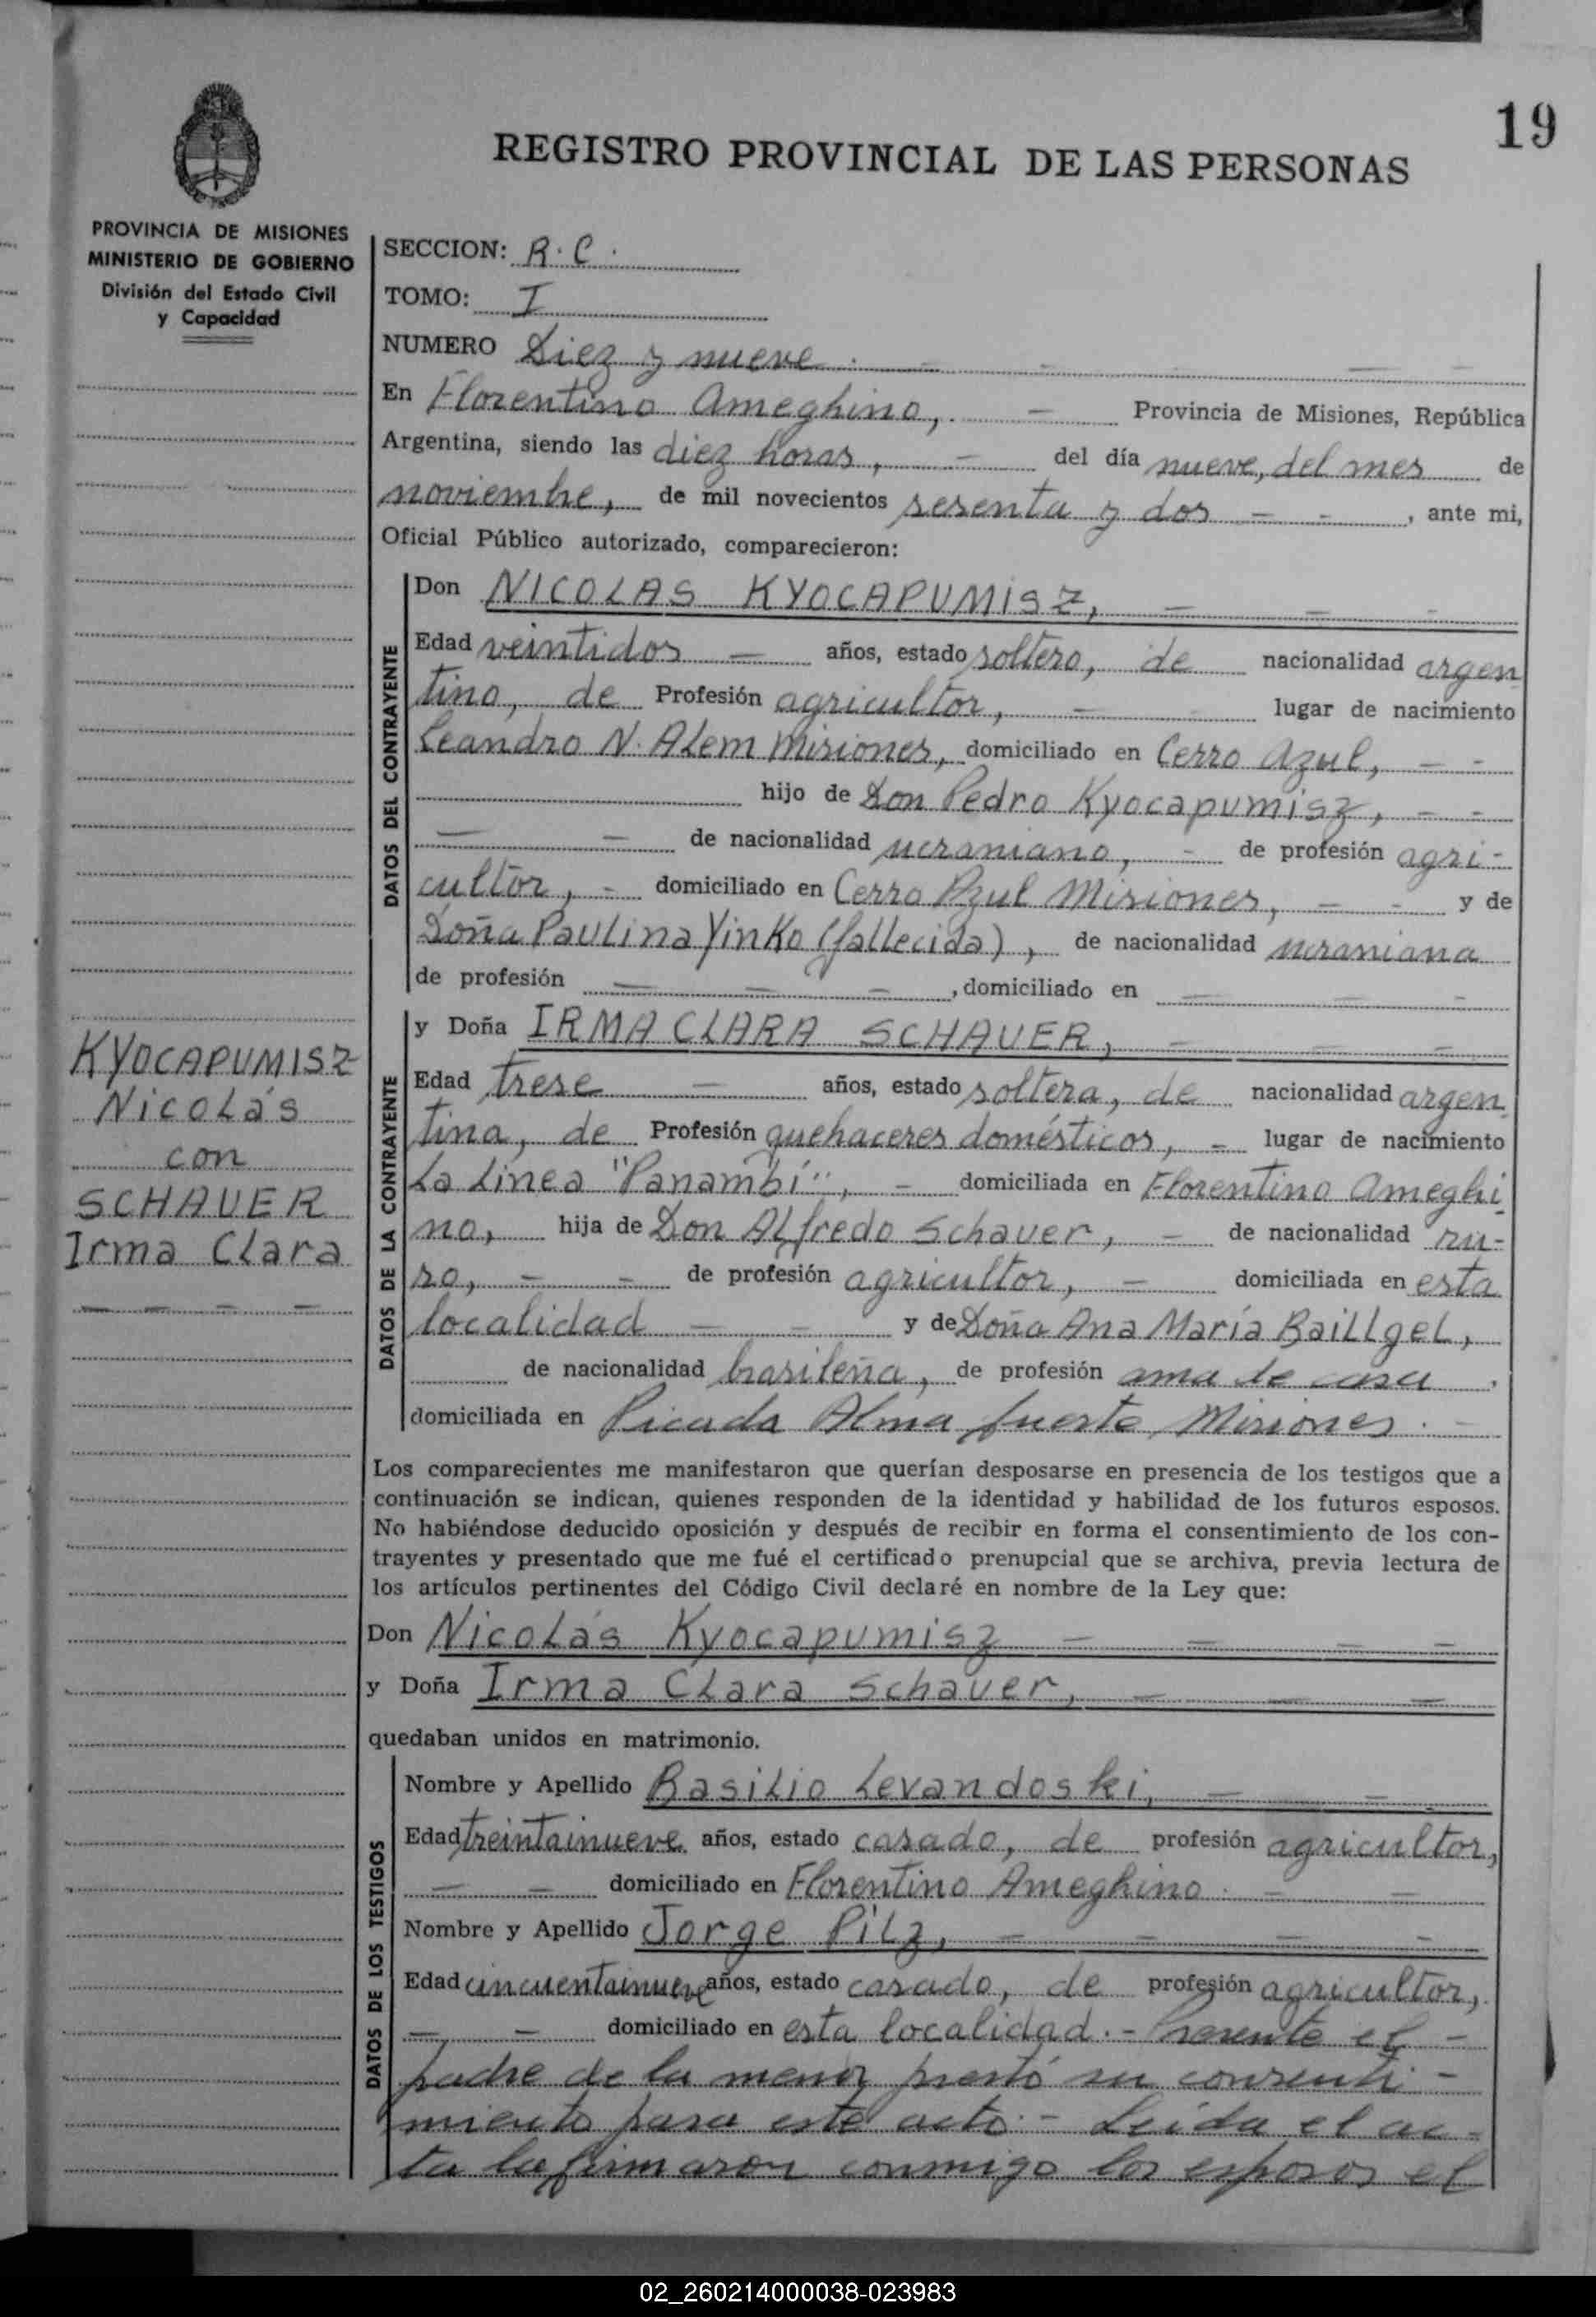 19
REGISTRO PROVINCIAL DE LAS PERSONAS
PROVINCIA DE MISIONES
MINISTERIO DE GOBIERNO
División del Estado Civil
y Capacidad
SECCION: R. C.
TOMO: I
NUMERO Diez y nueve.
En Florentino Ameghino, — Provincia de Misiones, República
Argentina, siendo las diez horas, — del día nueve, del mes de
noviembre, de mil novecientos sesenta y dos — -, ante mi,
Oficial Público autorizado, comparecieron:
DATOS DEL CONTRAYENTE
Don NICOLAS KYOCAPUMISZ, — — -
Edad veintidos — años, estado soltero, de nacionalidad argen
tino, de Profesión agricultor, — lugar de nacimiento
Leandro N. Alem Misiones, domiciliado en Cerro Azul, — -
hijo de Don Pedro Kyocapumisz, — -
— — de nacionalidad ucraniano, - de profesión agri-
cultor, - domiciliado en Cerro Azul Misiones, — - y de
Doña Paulina Yinko (fallecida), de nacionalidad ucraniana
de profesión — — —, domiciliado en — — -
KYOCAPUMISZ
Nicolás
con
SCHAUER
Irma Clara
— — — —
DATOS DE LA CONTRAYENTE
y Doña IRMA CLARA SCHAUER, — — —
Edad trese — años, estado soltera, de nacionalidad argen
tina, de Profesión quehaceres domésticos, - lugar de nacimiento
La Línea "Panambí", - domiciliada en Florentino Ameghi
no, hija de Don Alfredo Schauer, — de nacionalidad ru-
so, — — de profesión agricultor, — domiciliada en esta
localidad — — y de Doña Ana María Baillgel,
de nacionalidad brasileña, de profesión ama de casa.
domiciliada en Picada Alma fuerte Misiones. —
Los comparecientes me manifestaron que querían desposarse en presencia de los testigos que a
continuación se indican, quienes responden de la identidad y habilidad de los futuros esposos.
No habiéndose deducido oposición y después de recibir en forma el consentimiento de los con-
trayentes y presentado que me fué el certificado prenupcial que se archiva, previa lectura de
los artículos pertinentes del Código Civil declaré en nombre de la Ley que:
Don Nicolás Kyocapumisz — — — —
y Doña Irma Clara Schauer, — — —
quedaban unidos en matrimonio.
DATOS DE LOS TESTIGOS
Nombre y Apellido Basilio Levandoski, — —
Edad treintainueve años, estado casado, de profesión agricultor,
— — domiciliado en Florentino Ameghino. — —
Nombre y Apellido Jorge Pilz, — — — -
Edad cincuentainueve años, estado casado, de profesión agricultor,
— — domiciliado en esta localidad. - Presente el -
padre de la menor prestó su consenti-
miento para este acto. - Leída el ac-
ta la firmaron conmigo los esposos el
02_260214000038-023983